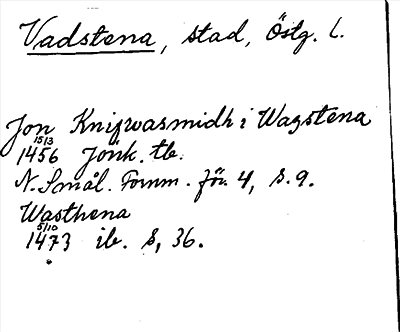 Vadstena, stad, Östg. l.
Jon Knifwasmidh i Wazstena
15/3
1456 Jönk. tb.
N. Smål. Fornm. för. 4, s. 9.
Wasthena
5/10
1473 ib. s, 36.